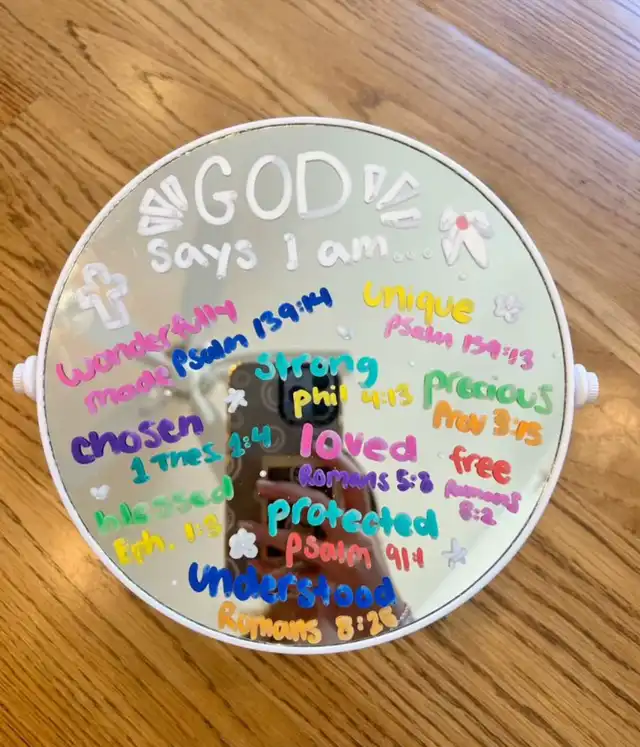 GOD
says I am...
wonderfully
made Psalm 139:14
unique
Psalm 139:13
strong
Phil 4:13
precious
Prov 3:15
chosen
1 Thes 1:4
loved
Romans 5:8
free
Romans
8:2
blessed
Eph. 1:3
protected
Psalm 91:1
understood
Romans 8:26